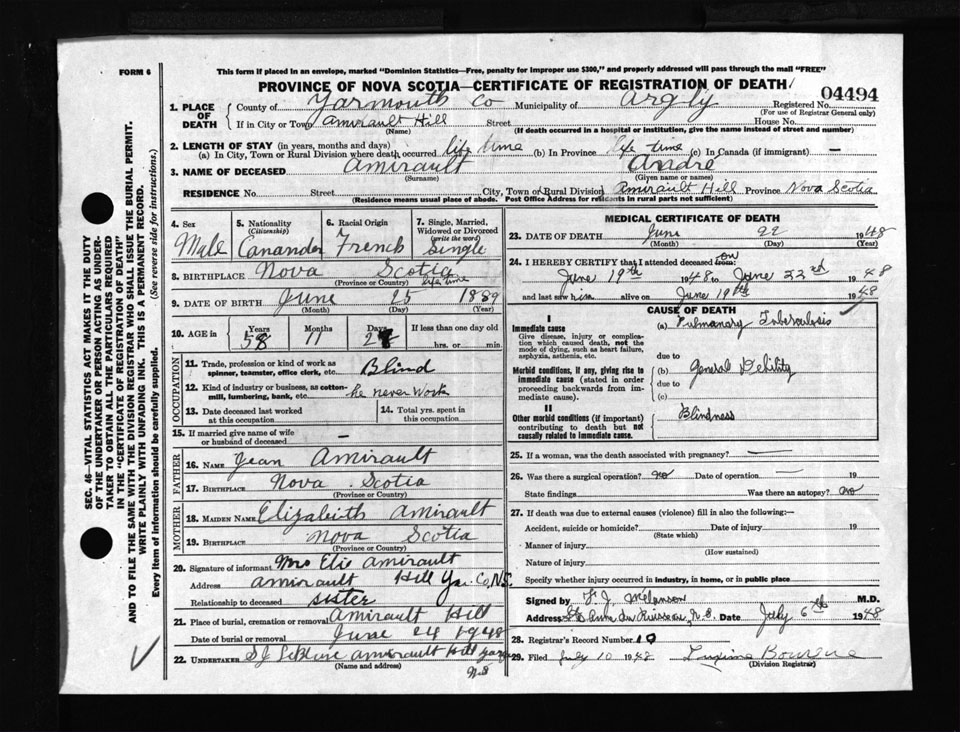 FORM 6
This form if placed in an envelope, marked "Dominion Statistics—Free, penalty for improper use $300," and properly addressed will pass through the mail "FREE"
PROVINCE OF NOVA SCOTIA—CERTIFICATE OF REGISTRATION OF DEATH
04494
1. PLACE OF DEATH County of Yarmouth Co Municipality of Argly Registered No.
(For use of Registrar General only)
If in City or Town Amirault Hill Street House No.
(Name) (If death occurred in a hospital or institution, give the name instead of street and number)
2. LENGTH OF STAY (in years, months and days)
(a) In City, Town or Rural Division where death occurred life time (b) In Province life time (c) In Canada (if immigrant) —
3. NAME OF DECEASED Amirault André
(Surname) (Given name or names)
RESIDENCE No. Street City, Town or Rural Division Amirault Hill Province Nova Scotia
(Residence means usual place of abode. Post Office Address for residents in rural parts not sufficient)
4. Sex Male
5. Nationality (Citizenship) Canander
6. Racial Origin French
7. Single, Married, Widowed or Divorced (write the word) Single
8. BIRTHPLACE Nova Scotia
(Province or Country) life time
9. DATE OF BIRTH June 15 1889
(Month) (Day) (Year)
10. AGE in Years Months Days If less than one day old
58 11 hrs. or min.
OCCUPATION
11. Trade, profession or kind of work as spinner, teamster, office clerk, etc. Blind
12. Kind of industry or business, as cotton-mill, lumbering, bank, etc. he never Work
13. Date deceased last worked at this occupation
14. Total yrs. spent in this occupation
15. If married give name of wife or husband of deceased —
FATHER
16. NAME Jean Amirault
17. BIRTHPLACE Nova Scotia
(Province or Country)
MOTHER
18. MAIDEN NAME Elizabeith Amirault
19. BIRTHPLACE Nova Scotia
(Province or Country)
20. Signature of informant Mrs Elie Amirault
Address Amirault Hill Yar. Co, N.S.
Relationship to deceased sister
21. Place of burial, cremation or removal Amirault Hill
Date of burial or removal June 24 1948
22. UNDERTAKER S J LeBlanc Amirault Hill Yar
(Name and address) N.S
MEDICAL CERTIFICATE OF DEATH
23. DATE OF DEATH June 22 1948
(Month) (Day) (Year)
24. I HEREBY CERTIFY that I attended deceased from: on
June 19th 1948 to June 22rd 1948
and last saw him alive on June 19th 1948
CAUSE OF DEATH
I
Immediate cause (a) Pulmonary Tuberculosis
Give disease, injury or complication which caused death, not the mode of dying, such as heart failure, asphyxia, asthenia, etc.
due to
Morbid conditions, if any, giving rise to immediate cause (stated in order proceeding backwards from immediate cause).
(b) General Debility
due to
(c)
II
Other morbid conditions (if important) contributing to death but not causally related to immediate cause.
Blindness
25. If a woman, was the death associated with pregnancy? —
26. Was there a surgical operation? no Date of operation — 19
State findings Was there an autopsy? no
27. If death was due to external causes (violence) fill in also the following:—
Accident, suicide or homicide? Date of injury 19
(State which)
Manner of injury
(How sustained)
Nature of injury
Specify whether injury occurred in industry, in home, or in public place
Signed by F. J. Melanson M.D.
Address Ste Anne du Ruisseau, N.S. Date July 6th 1948
28. Registrar's Record Number 10
29. Filed July 10 1948 Bourque
(Division Registrar)
SEC. 46—VITAL STATISTICS ACT MAKES IT THE DUTY
OF THE UNDERTAKER OR PERSON ACTING AS UNDER-
TAKER TO OBTAIN ALL THE PARTICULARS REQUIRED
IN THE "CERTIFICATE OF REGISTRATION OF DEATH"
AND TO FILE THE SAME WITH THE DIVISION REGISTRAR WHO SHALL ISSUE THE BURIAL PERMIT.
WRITE PLAINLY WITH UNFADING INK. THIS IS A PERMANENT RECORD.
Every item of information should be carefully supplied. (See reverse side for instructions.)